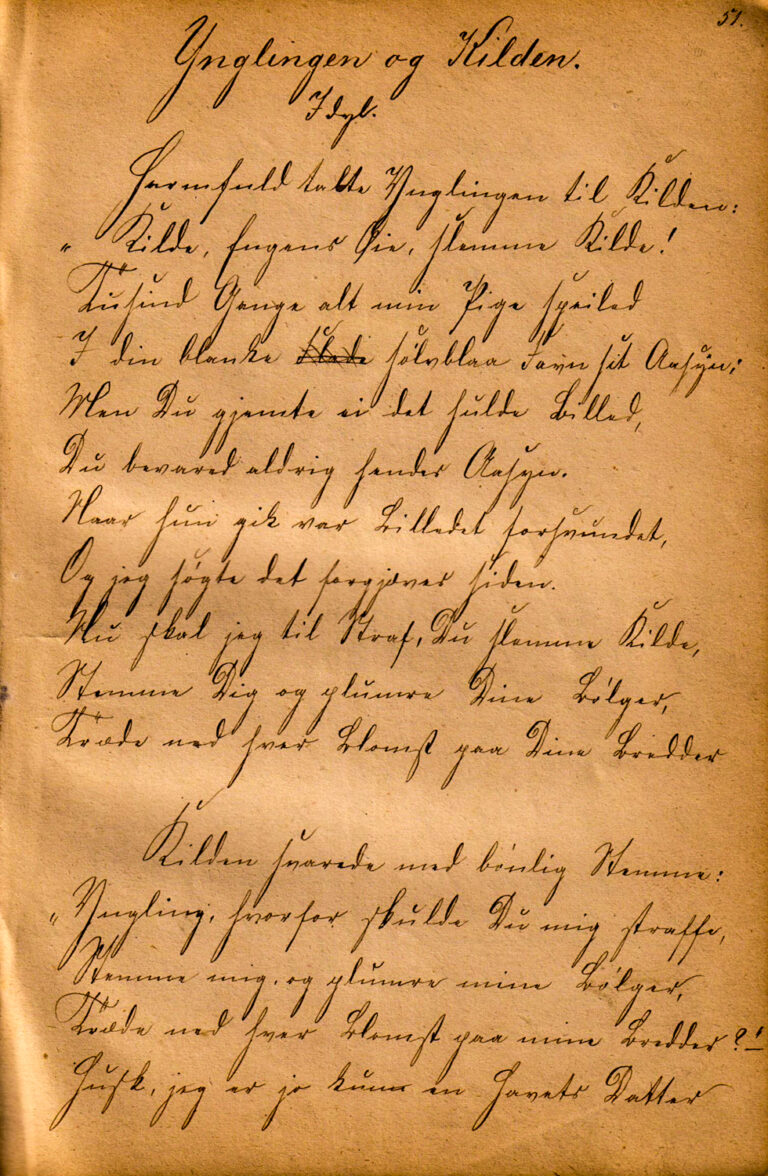 51.
Ynglingen og Kilden.
Idyl.
Harmfuld talte Ynglingen til Kilden:
„Kilde, Engens Øie, slemme Kilde!
Tusind Gange alt min Pige speiled
I din blanke sølvblaa Favn sit Aasyn;
Men Du gjemte ei det hulde Billed,
Du bevared aldrig hendes Aasyn.
Naar hun gik var Billedet forsvundet,
Og jeg søgte det forgjæves siden.
Nu skal jeg til Straf, Du slemme Kilde,
Stemme Dig og plumre Dine Bølger,
Træde ned hver Blomst paa Dine Bredder
Kilden svarede med bønlig Stemme:
„Yngling, hvorfor skulde Du mig straffe,
Stemme mig, og plumre mine Bølger,
Træde ned hver Blomst paa mine Bredder?!
Husk, jeg er jo kun en Havets Datter